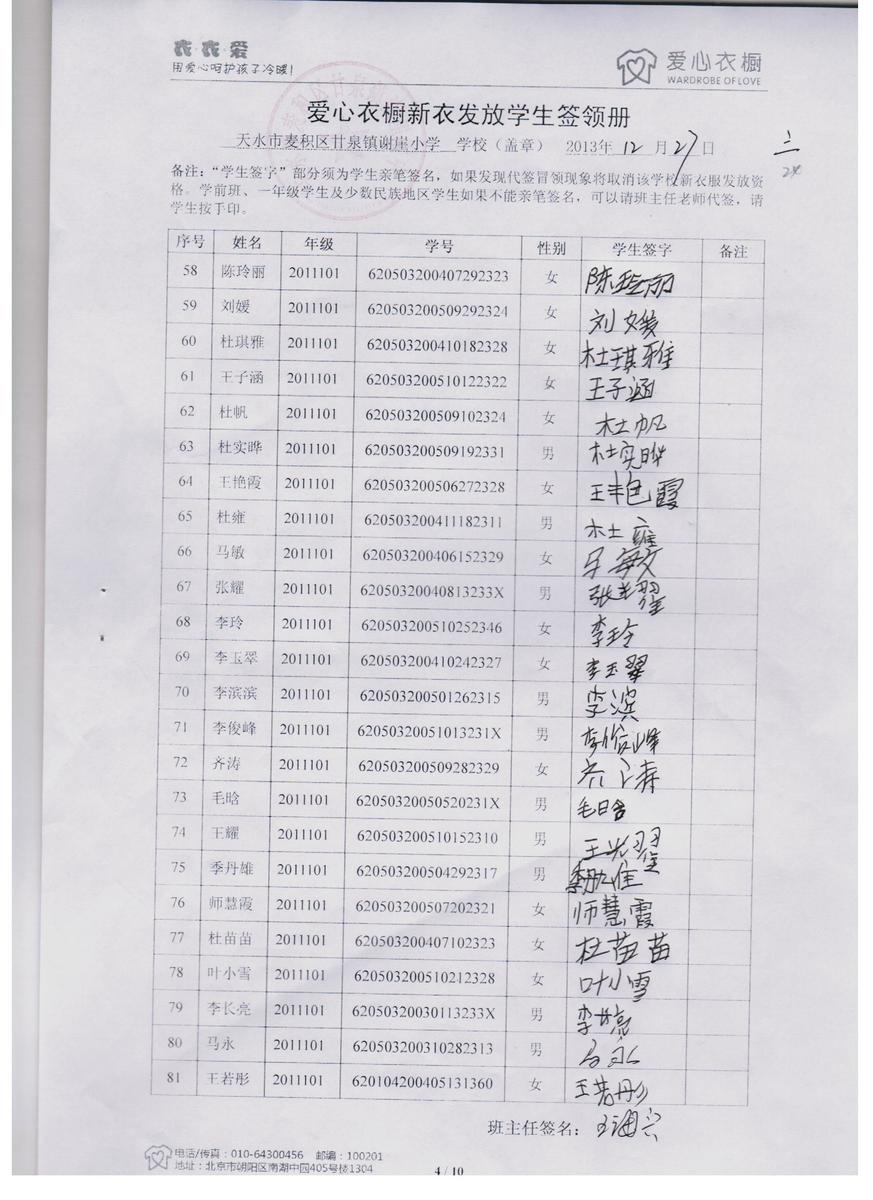 衣·衣·爱
用爱心呵护孩子冷暖!
爱心衣橱
WARDROBE OF LOVE
爱心衣橱新衣发放学生签领册
天水市麦积区甘泉镇谢崖小学 学校（盖章） 2013年 12 月 27 日
三
24
备注："学生签字"部分须为学生亲笔签名，如果发现代签冒领现象将取消该学校新衣服发放资
格。学前班、一年级学生及少数民族地区学生如果不能亲笔签名，可以请班主任老师代签，请
学生按手印。
序号 姓名 年级 学号 性别 学生签字 备注
58 陈玲丽 2011101 620503200407292323 女 陈玲丽
59 刘媛 2011101 620503200509292324 女 刘媛
60 杜琪雅 2011101 620503200410182328 女 杜琪雅
61 王子涵 2011101 620503200510122322 女 王子涵
62 杜帆 2011101 620503200509102324 女 杜帆
63 杜实晔 2011101 620503200509192331 男 杜实晔
64 王艳霞 2011101 620503200506272328 女 王艳霞
65 杜雍 2011101 620503200411182311 男 杜雍
66 马敏 2011101 620503200406152329 女 马敏
67 张耀 2011101 62050320040813233X 男 张耀
68 李玲 2011101 620503200510252346 女 李玲
69 李玉翠 2011101 620503200410242327 女 李玉翠
70 李滨滨 2011101 620503200501262315 男 李滨
71 李俊峰 2011101 62050320051013231X 男 李俊峰
72 齐涛 2011101 620503200509282329 女 齐涛
73 毛晗 2011101 62050320050520231X 男 毛晗
74 王耀 2011101 620503200510152310 男 王耀
75 季丹雄 2011101 620503200504292317 男 季丹雄
76 师慧霞 2011101 620503200507202321 女 师慧霞
77 杜苗苗 2011101 620503200407102323 女 杜苗苗
78 叶小雪 2011101 620503200510212328 女 叶小雪
79 李长亮 2011101 62050320030113233X 男 李长亮
80 马永 2011101 620503200310282313 男 马永
81 王若彤 2011101 620104200405131360 女 王若彤
班主任签名：
电话/传真：010-64300456 邮编：100201
地址：北京市朝阳区南湖中园405号楼1304
4 / 10